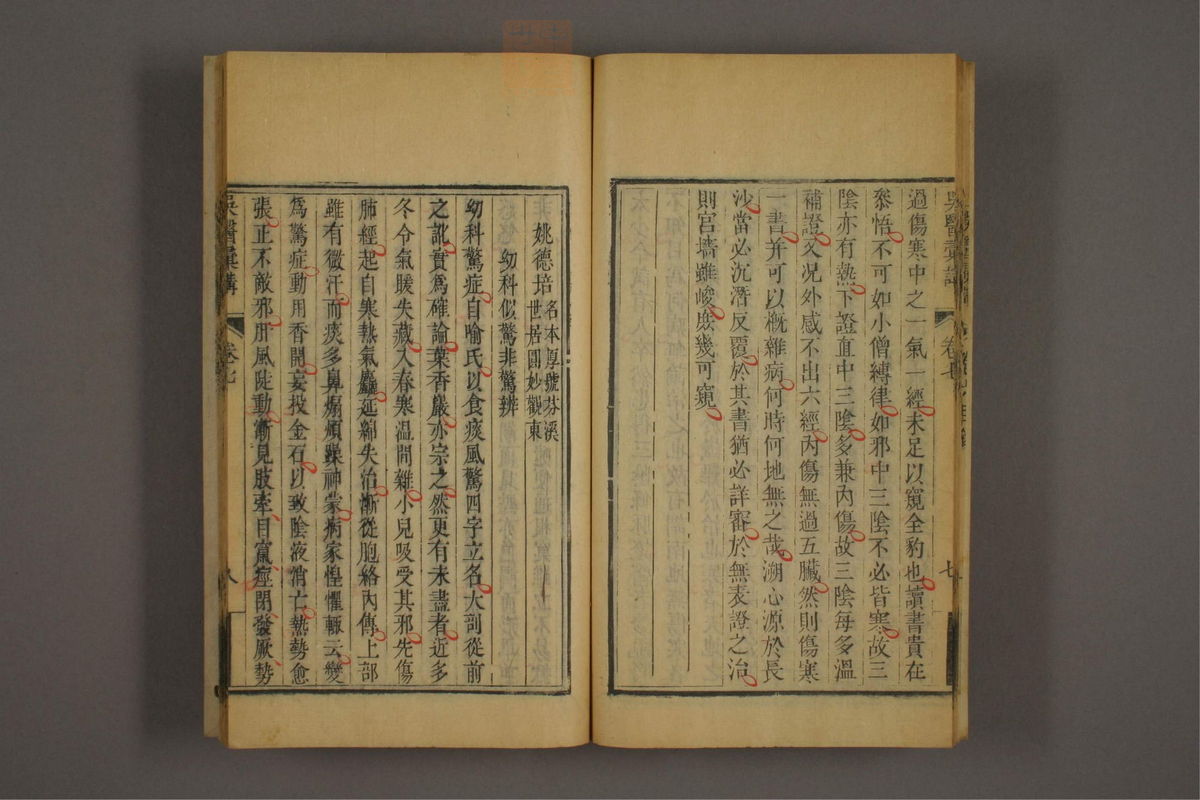 過傷寒中之一氣一經未足以窺全豹也讀書貴在
叅悟不可如小僧縛律如邪中三陰不必皆寒故三
陰亦有熱下證直中三陰多兼內傷故三陰每多溫
補證又况外感不出六經內傷無過五臟然則傷寒
一書并可以概雜病何時何地無之哉溯心源於長
沙當必沉潛反覆於其書猶必詳審於無表證之治
則宮墻雖峻庶幾可窺
姚德培
名本厚號芬溪
世居圓妙觀東
幼科似驚非驚辨
幼科驚症自喻氏以食痰風驚四字立名大剖從前
之訛實爲確論葉香巖亦宗之然更有未盡者近多
冬令氣暖失藏入春寒温間雜小兒吸受其邪先傷
肺經起自寒熱氣麤延綿失治漸從胞絡內傳上部
雖有微汗而痰多鼻煽煩躁神蒙病家惶懼輒云變
爲驚症動用香開妄投金石以致陰液消亡熱勢愈
張正不敵邪肝風陡動漸見肢牽目竄痙閉發厥勢
吳醫彙講
卷七
八